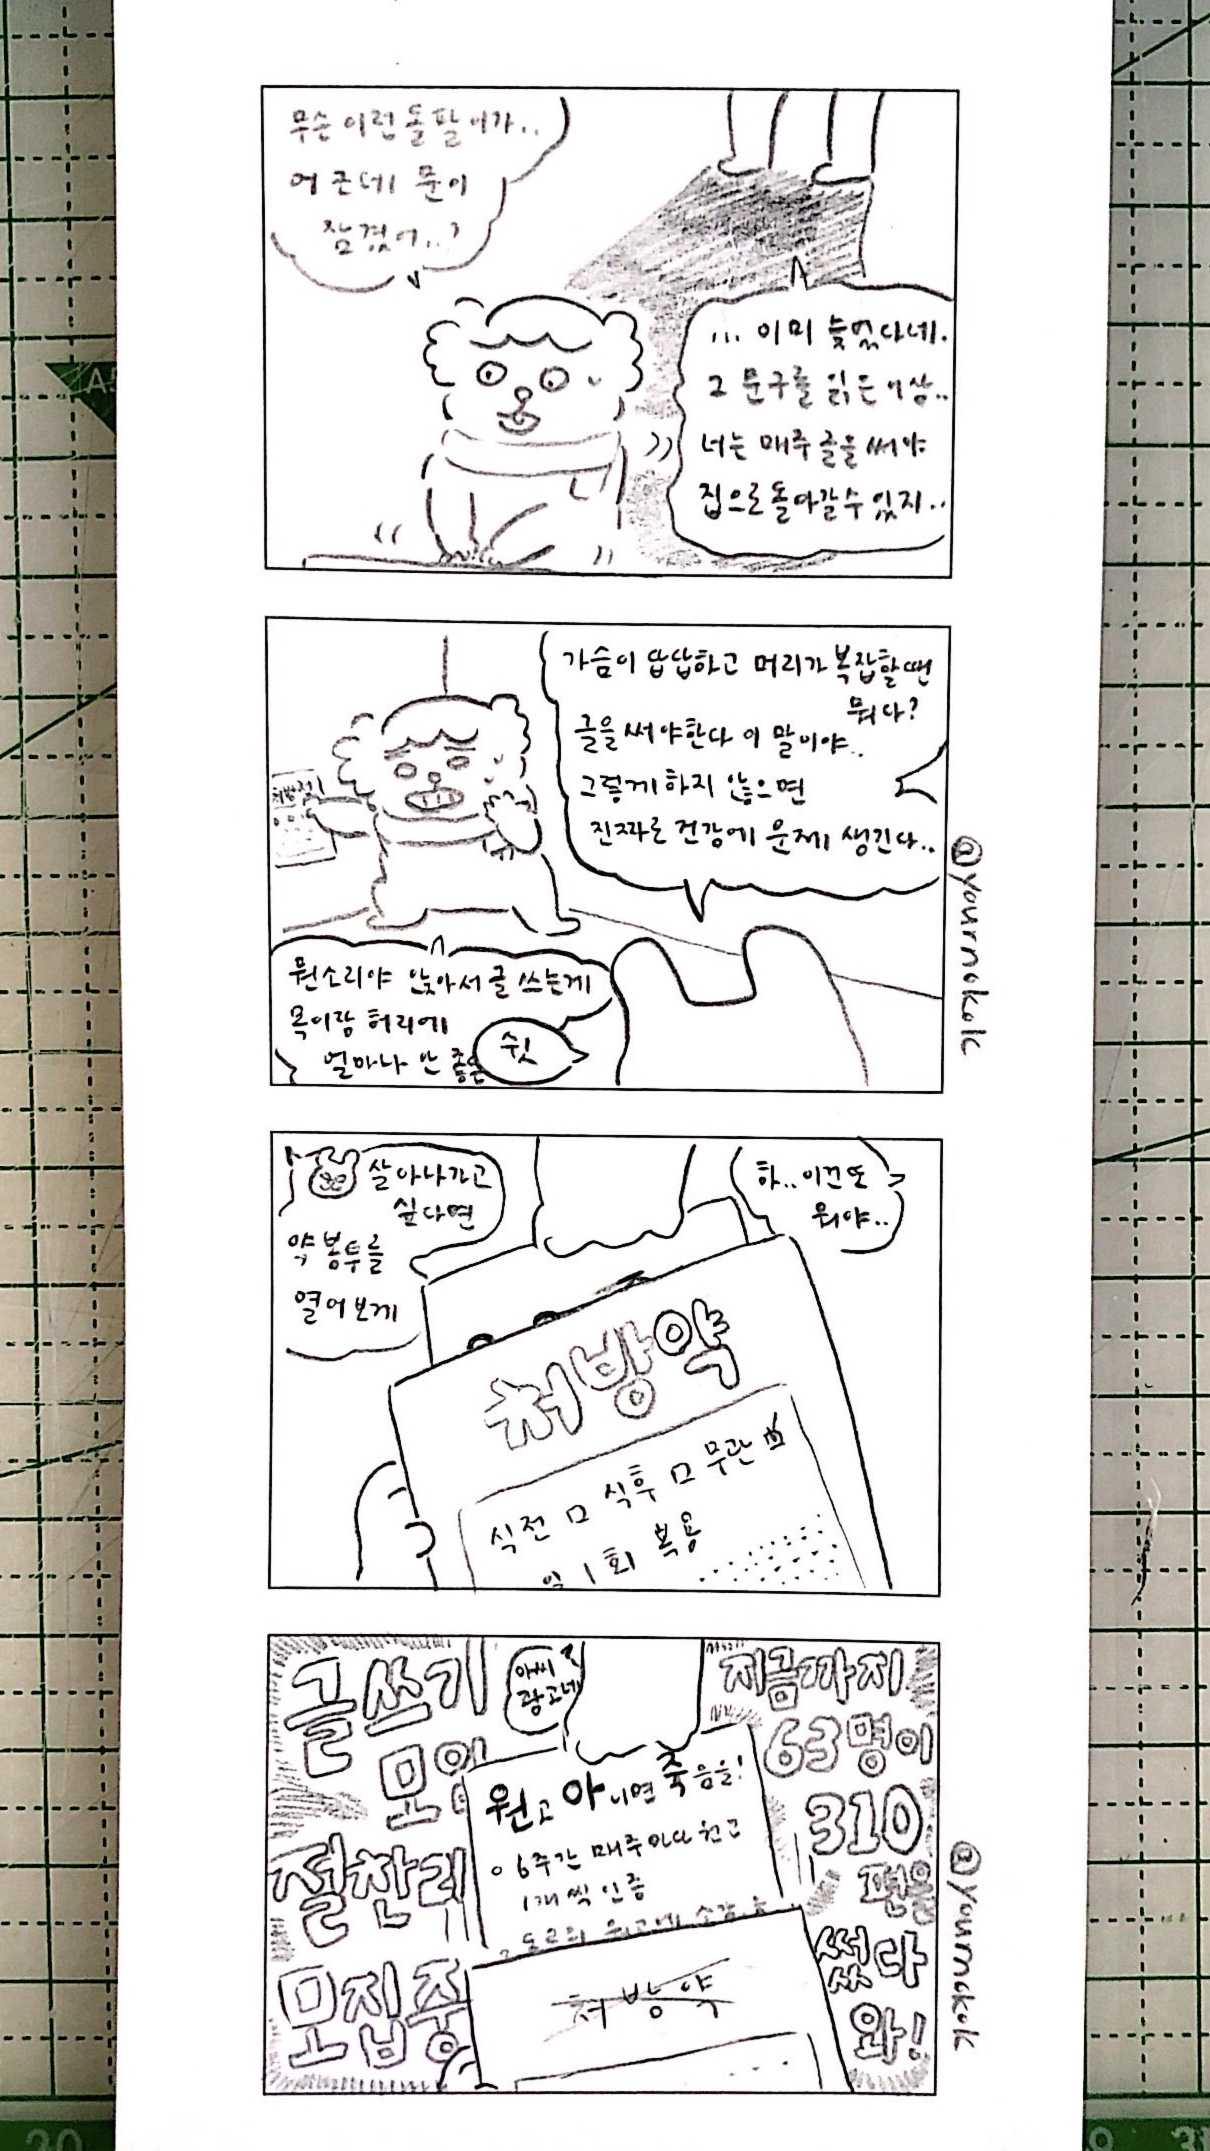 무슨 이런 돌팔이가..
어 근데 문이
잠겼어..?
... 이미 늦었다네.
그 문구를 읽은 이상..
너는 매주 글을 써야
집으로 돌아갈 수 있지..
가슴이 답답하고 머리가 복잡할 땐
뭐다?
글을 써야한다 이 말이야..
그렇게 하지 않으면
진짜로 건강에 문제 생긴다..
처방전
뭔소리야 앉아서 글 쓰는게
목이랑 허리에
얼마나 안 좋은
쉿
@yournokolc
살아나가고
싶다면
약 봉투를
열어보게
하.. 이건 또
뭐야..
처방약
식전 □ 식후 □ 무관
일 1회 복용
글쓰기
모임
절찬리
모집중
아씨
광고네
원고 아니면 죽음을!
6주간 매주마다 원고
1개씩 인증
처방약
지금까지
63명이
310
편을
썼다
와!
@yournokolc